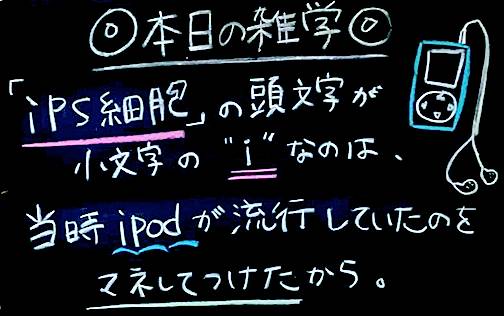 ◎本日の雑学◎
「iPS細胞」の頭文字が
小文字の"i"なのは、
当時ipodが流行していたのを
マネしてつけたから。